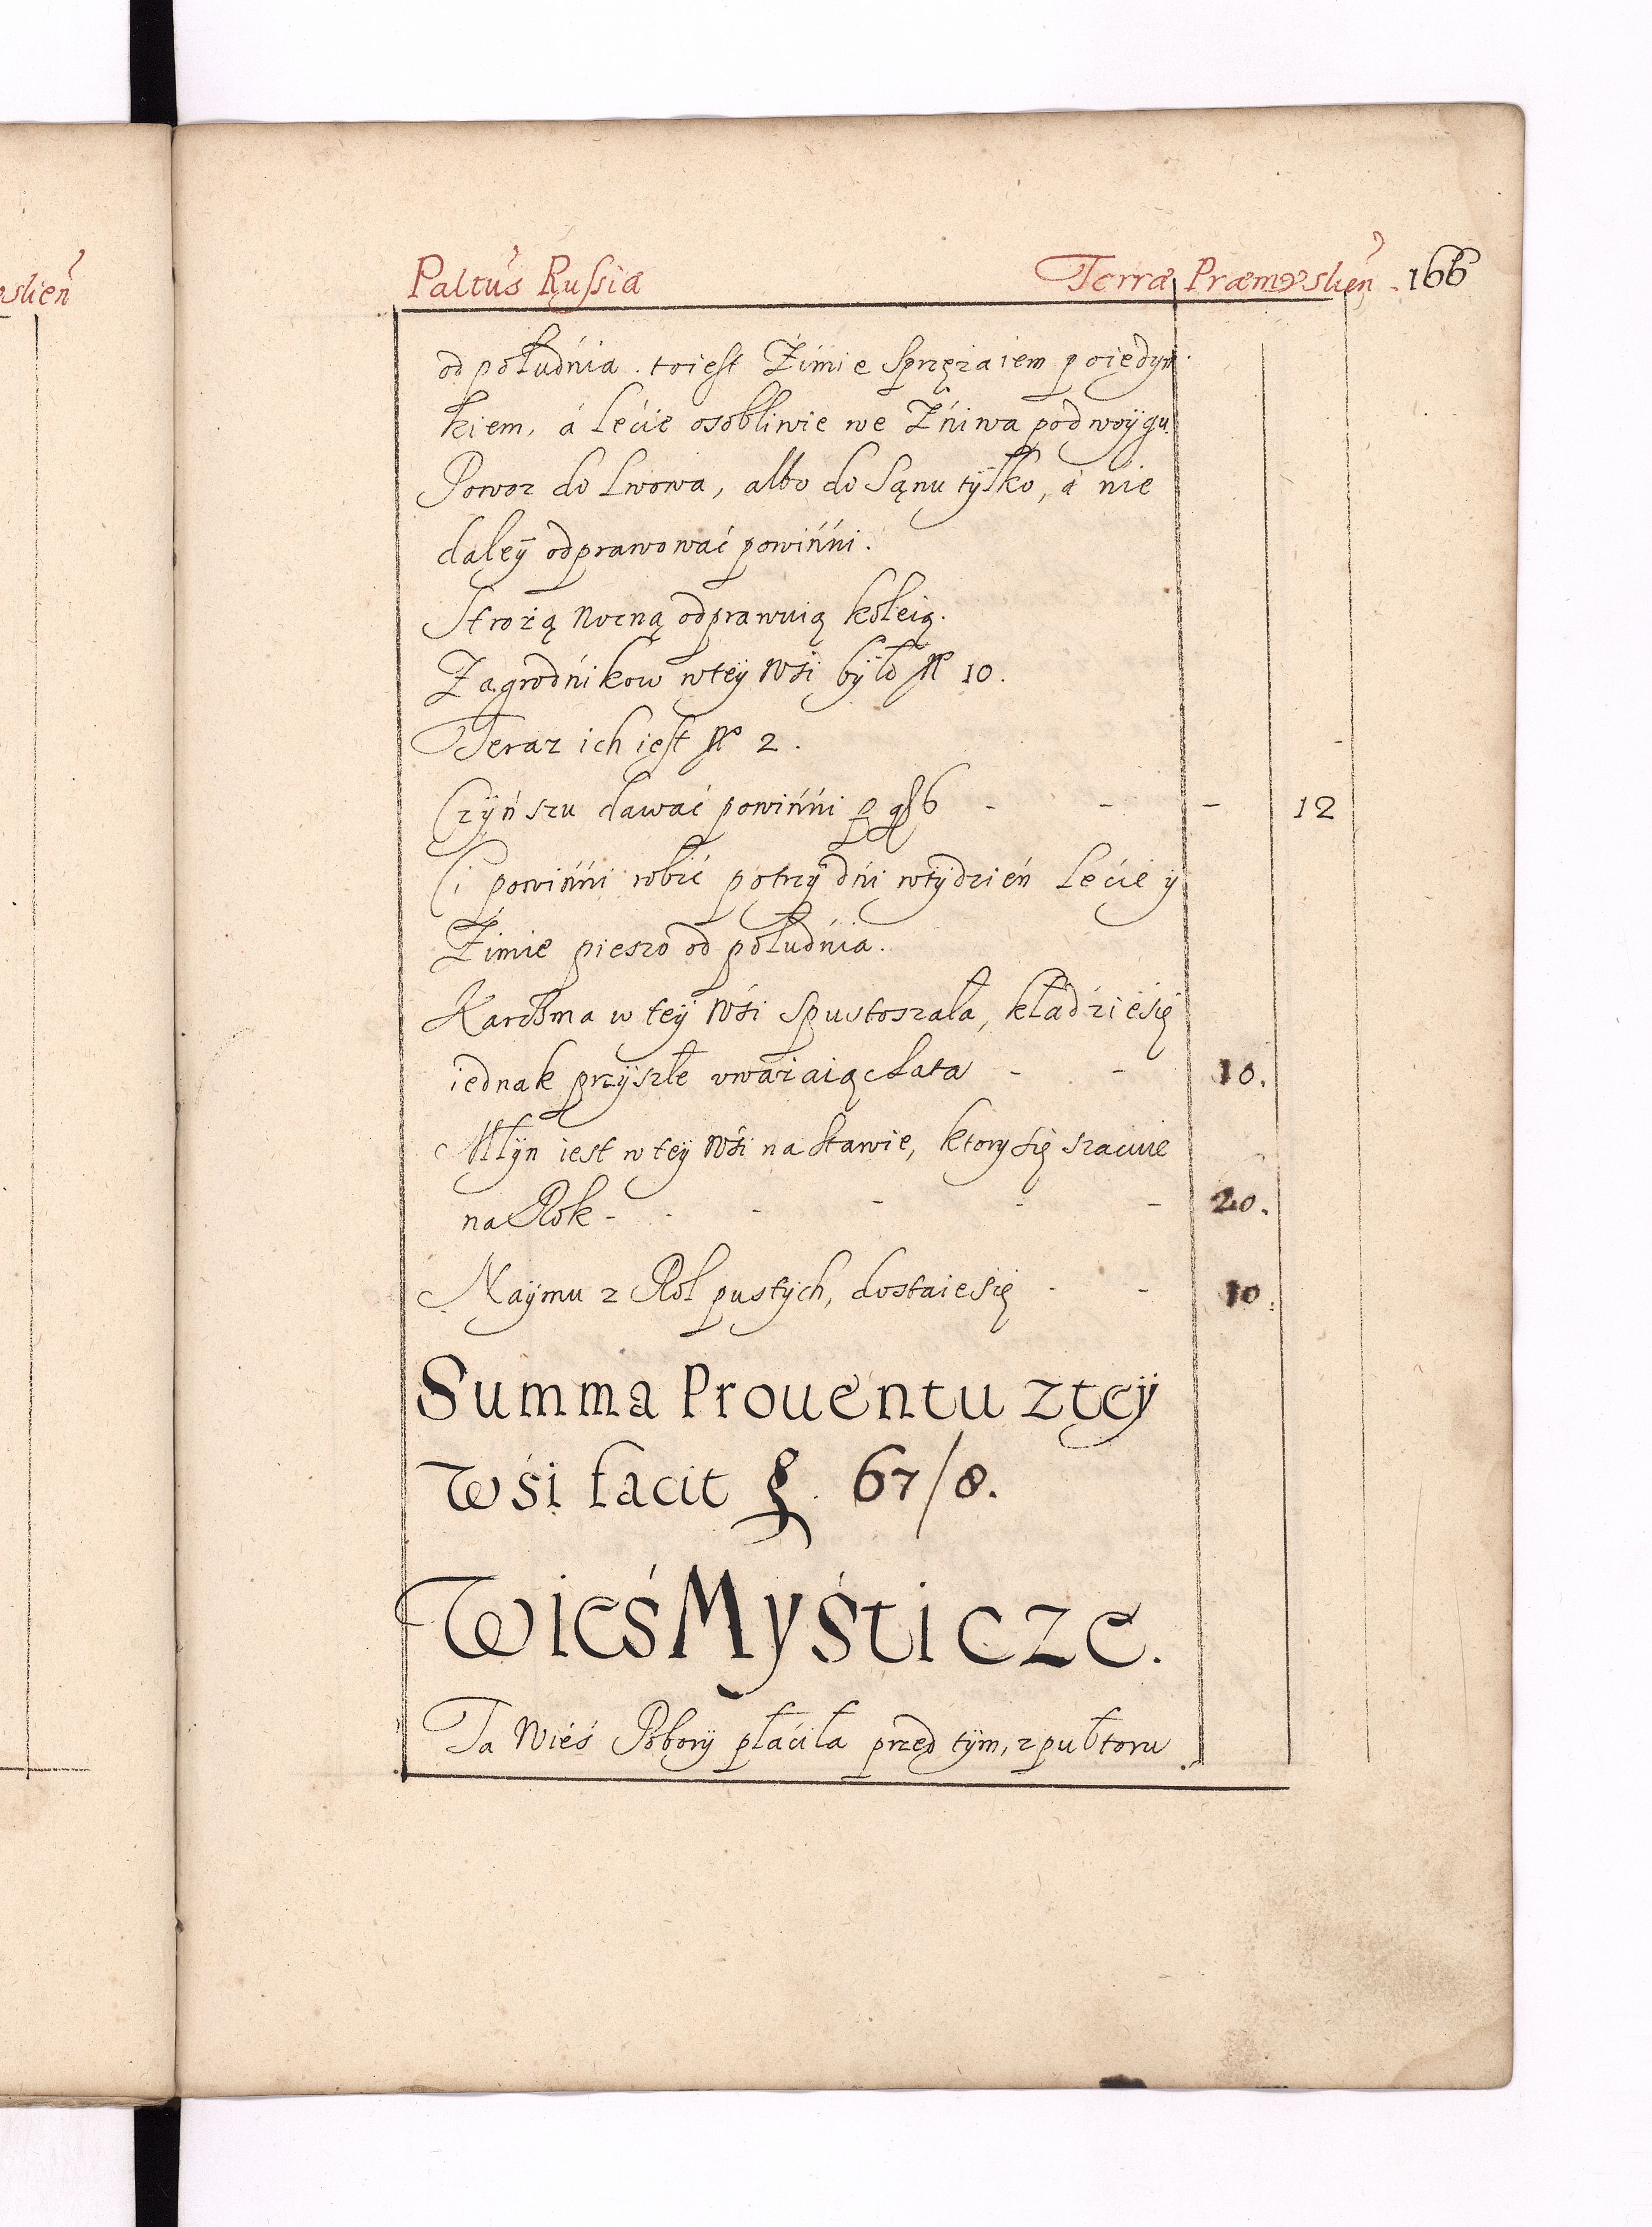 Paltus Russiæ Terræ Præmyslien̄. 166
slien̄
od południa. toiest Źimie Sprzężaiem poiedyn
kiem, á Lećie osobliwie we Żńiwa podwoÿgu.
Powoz do Lwowa, albo do Sąnu tÿlko, á nie
daleÿ odprawować powińńi.
Strożą Nocną odprawuią koleią.
Zagrodńikow wteÿ Wśi bÿło No 10.
Teraz ich iest No 2.
Czÿńszu dawać powińńi p gr 6 - - - 12
Ci powińńi robić potrzÿ dńi wtÿdzień Lećie ÿ
Źimie pieszo od południa.
Karczma w teÿ Wśi spustoszała, kładźieśię
iednak przÿszłe uważaiąc Lata - - 10.
Młÿn iest w teÿ Wśi na Stawie, ktorÿ śię szacuie
na Rok - - - - - - 20.
Naÿmu z Rol pustÿch, dostaieśię - - 10.
Summa Prouentu zteÿ
Wśi facit fl. 67/8.
Wieś Myśticze.
Ta Wieś Poborÿ płaćiła przed tÿm, z pułtoru